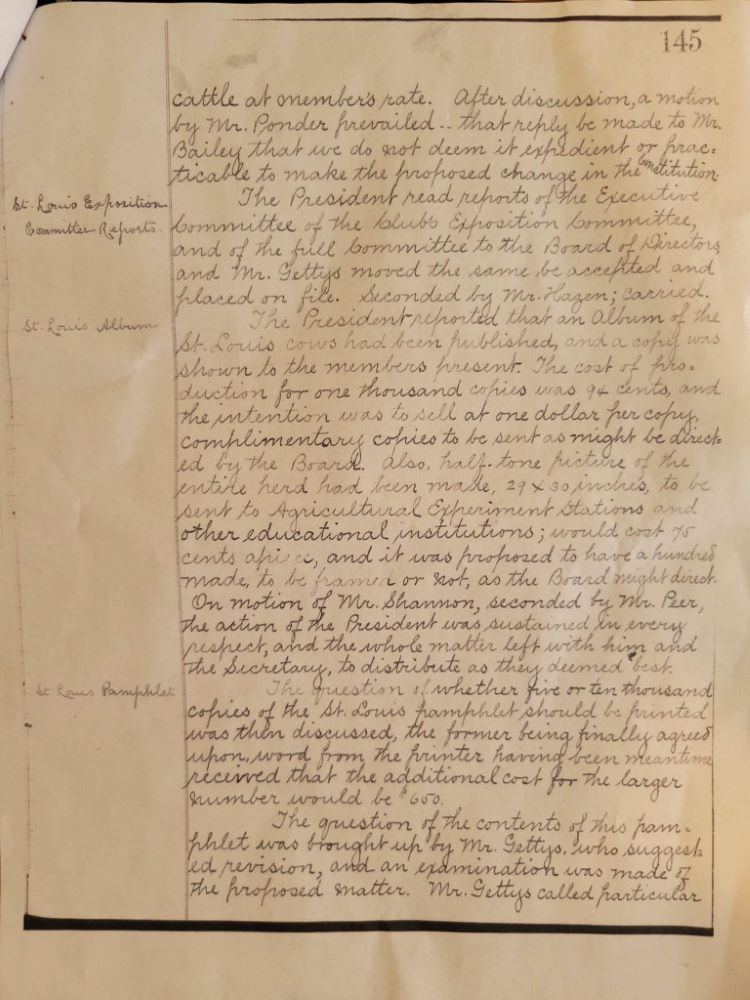 145
cattle at member's rate. After discussion, a motion
by Mr. Ponder prevailed -- that reply be made to Mr.
Bailey that we do not deem it expedient or prac=
ticable to make the proposed change in the Constitution.
St. Louis Exposition
Committee Reports.
The President read reports of the Executive
Committee of the Clubs Exposition Committee,
and of the full Committee to the Board of Directors,
and Mr. Gettys moved the same be accepted and
placed on file. Seconded by Mr. Hazen; carried.
St. Louis Album
The President reported that an Album of the
St. Louis cows had been published, and a copy was
shown to the members present. The cost of pro=
duction for one thousand copies was 94 cents, and
the intention was to sell at one dollar per copy,
complimentary copies to be sent as might be direct=
ed by the Board. Also, half-tone picture of the
entire herd had been made, 29 x 30 inches, to be
sent to Agricultural Experiment Stations and
other educational institutions; would cost 75
cents apiece, and it was proposed to have a hundred
made, to be framed or not, as the Board might direct.
On motion of Mr. Shannon, seconded by Mr. Peer,
the action of the President was sustained in every
respect, and the whole matter left with him and
the Secretary, to distribute as they deemed best.
St. Louis Pamphlet
The question of whether five or ten thousand
copies of the St. Louis pamphlet should be printed
was then discussed, the former being finally agreed
upon, word from the printer having been meantime
received that the additional cost for the larger
number would be $650.
The question of the contents of this pam=
phlet was brought up by Mr. Gettys, who suggest=
ed revision, and an examination was made of
the proposed matter. Mr. Gettys called particular